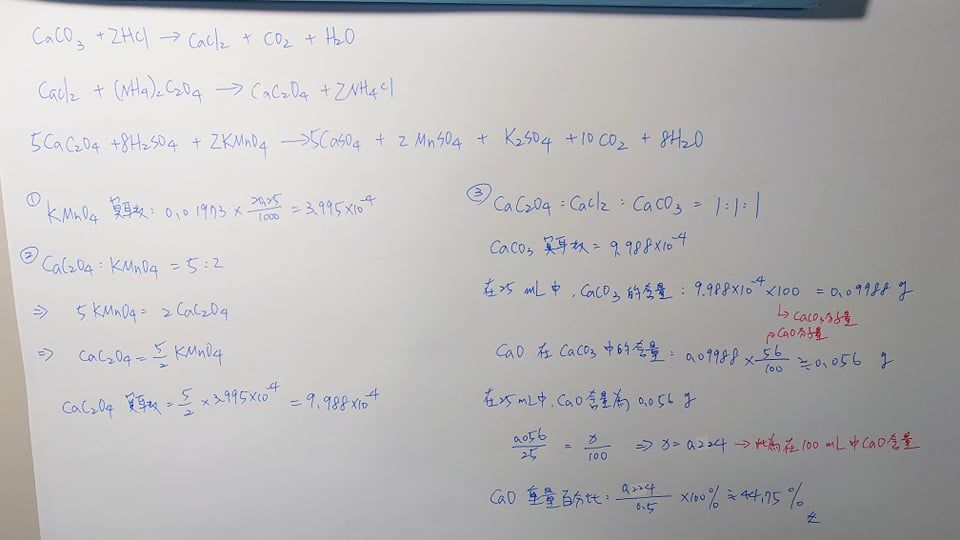 CaCO3 + 2HCl → CaCl2 + CO2 + H2O
CaCl2 + (NH4)2C2O4 → CaC2O4 + 2NH4Cl
5CaC2O4 + 8H2SO4 + 2KMnO4 → 5CaSO4 + 2MnSO4 + K2SO4 + 10CO2 + 8H2O
① KMnO4 莫耳數: 0.01973 × 20.25/1000 = 3.995×10^-4
② CaC2O4 : KMnO4 = 5 : 2
⇒ 5 KMnO4 = 2 CaC2O4
⇒ CaC2O4 = 5/2 KMnO4
CaC2O4 莫耳數 = 5/2 × 3.995×10^-4 = 9.988×10^-4
③ CaC2O4 : CaCl2 : CaCO3 = 1:1:1
CaCO3 莫耳數 = 9.988×10^-4
在25 mL中,CaCO3的含量: 9.988×10^-4 × 100 = 0.09988 g
↳ CaCO3分子量
CaO分子量
CaO 在 CaCO3 中的含量: 0.09988 × 56/100 ≒ 0.056 g
在25mL中,CaO含量為 0.056 g
0.056/25 = x/100 ⇒ x = 0.224 → 此為在100 mL中CaO含量
CaO 重量百分比: 0.224/0.5 × 100% ≒ 44.75%